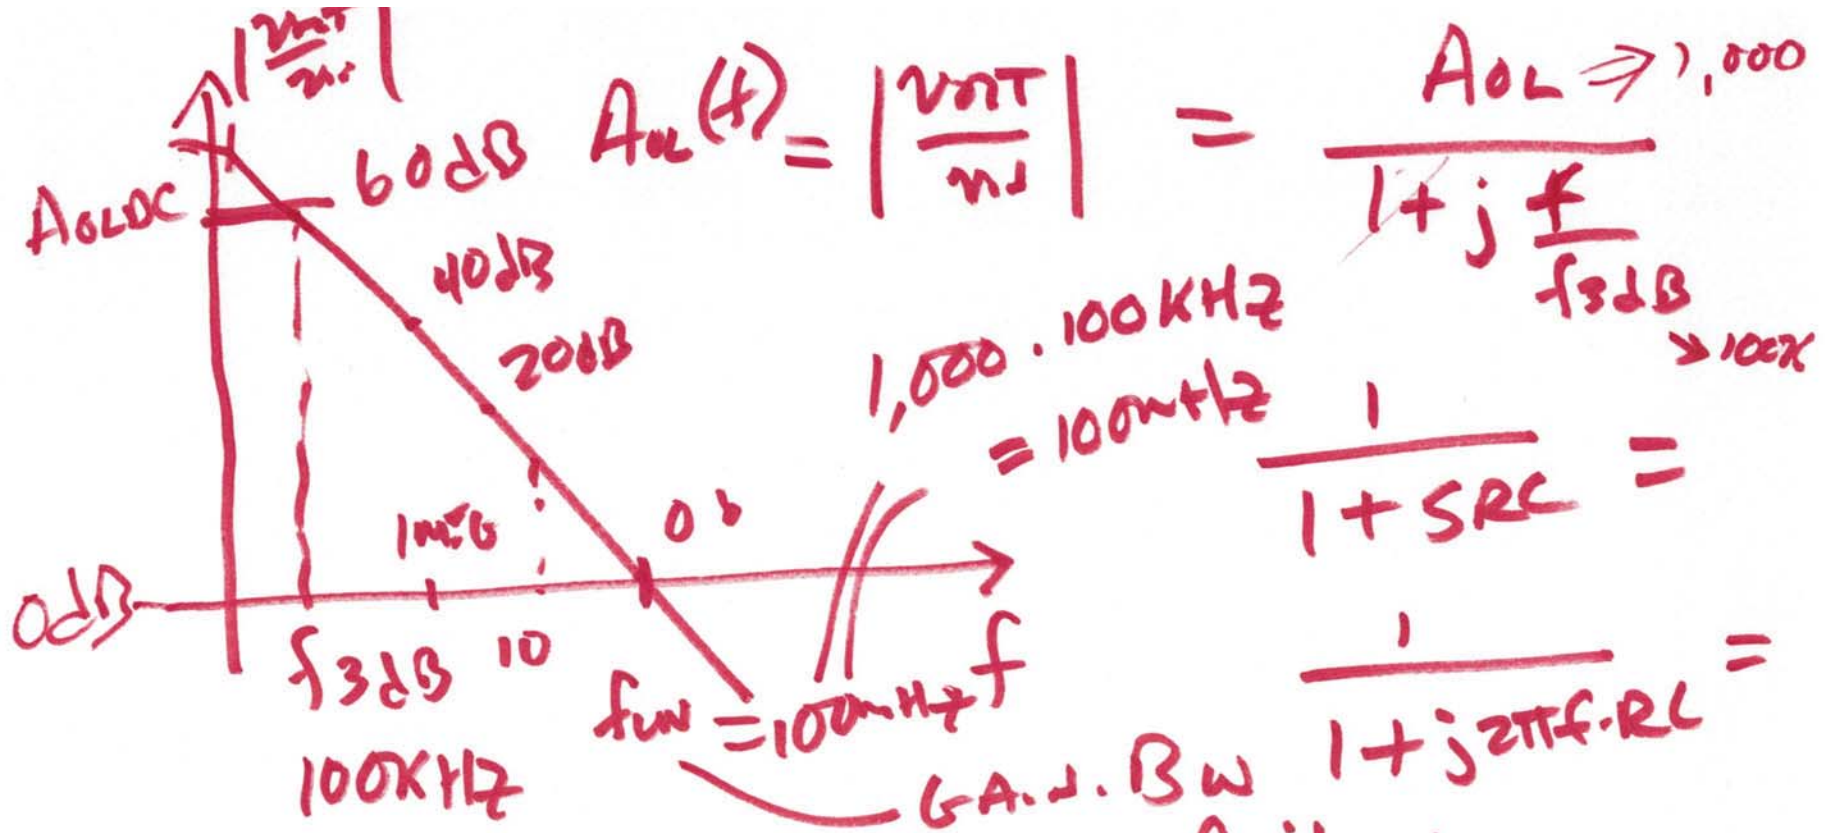 |vout/vin|
AOLDC
60dB
40dB
20dB
0dB
1MEG
f3dB
10
100KHz
fUN = 100MHz
f
AOL(f) = |vout/vin| = AOL ⇒ 1,000 / 1 + j f/f3dB → 100K
1,000 · 100KHz
= 100MHz
1 / 1 + SRC =
1 / 1 + j2πf·RC =
GAIN. BW